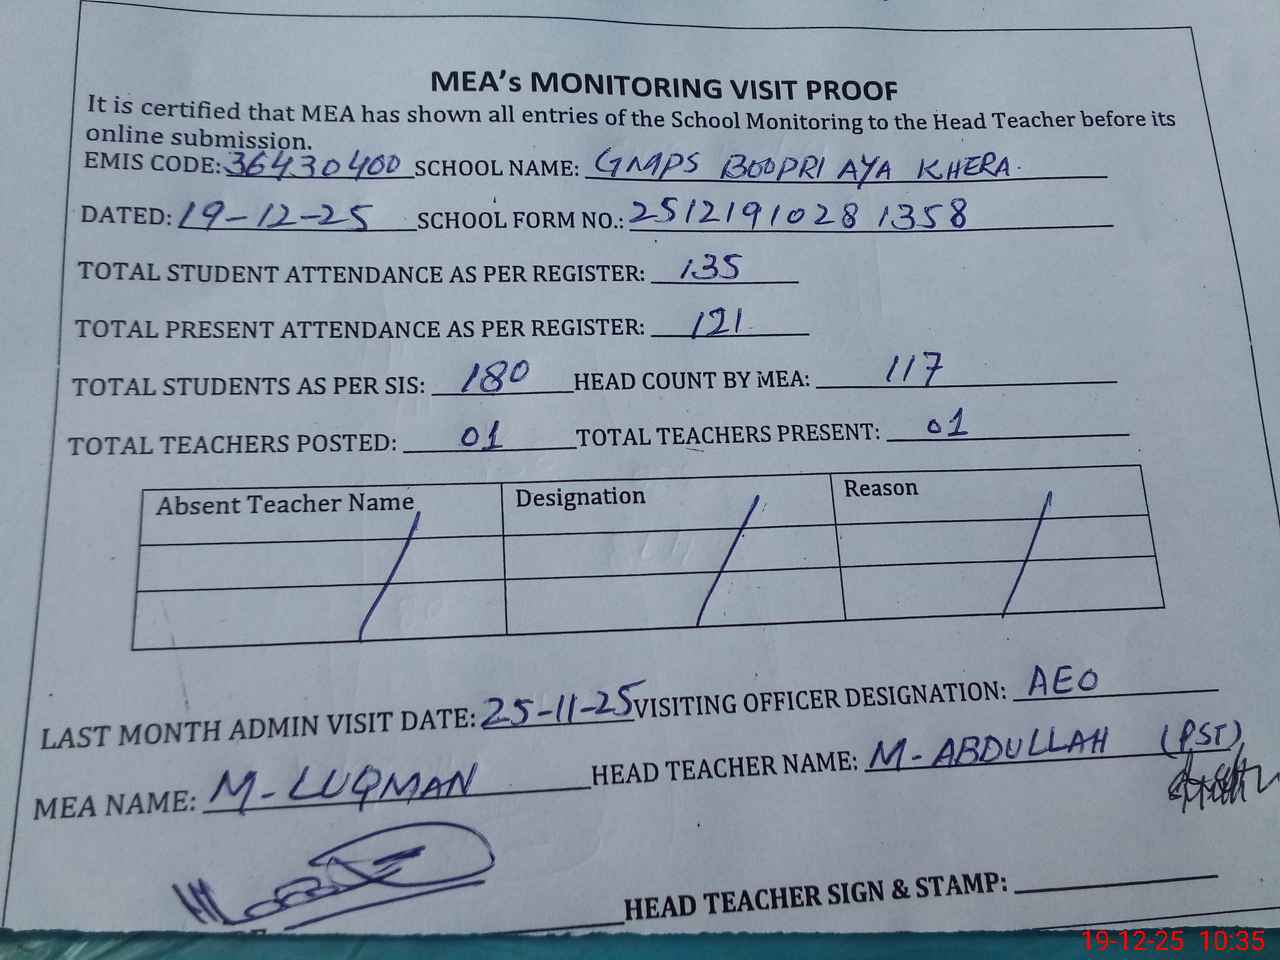 MEA's MONITORING VISIT PROOF
It is certified that MEA has shown all entries of the School Monitoring to the Head Teacher before its
online submission.
EMIS CODE: 36430400 SCHOOL NAME: GMPS BOOPRI AYA KHERA.
DATED: 19-12-25 SCHOOL FORM NO.: 2512191028 1358
TOTAL STUDENT ATTENDANCE AS PER REGISTER: 135
TOTAL PRESENT ATTENDANCE AS PER REGISTER: 121
TOTAL STUDENTS AS PER SIS: 180 HEAD COUNT BY MEA: 117
TOTAL TEACHERS POSTED: 01 TOTAL TEACHERS PRESENT: 01
Absent Teacher Name Designation Reason
LAST MONTH ADMIN VISIT DATE: 25-11-25 VISITING OFFICER DESIGNATION: AEO
MEA NAME: M-LUQMAN HEAD TEACHER NAME: M-ABDULLAH (PST)
HEAD TEACHER SIGN & STAMP:
19-12-25 10:35